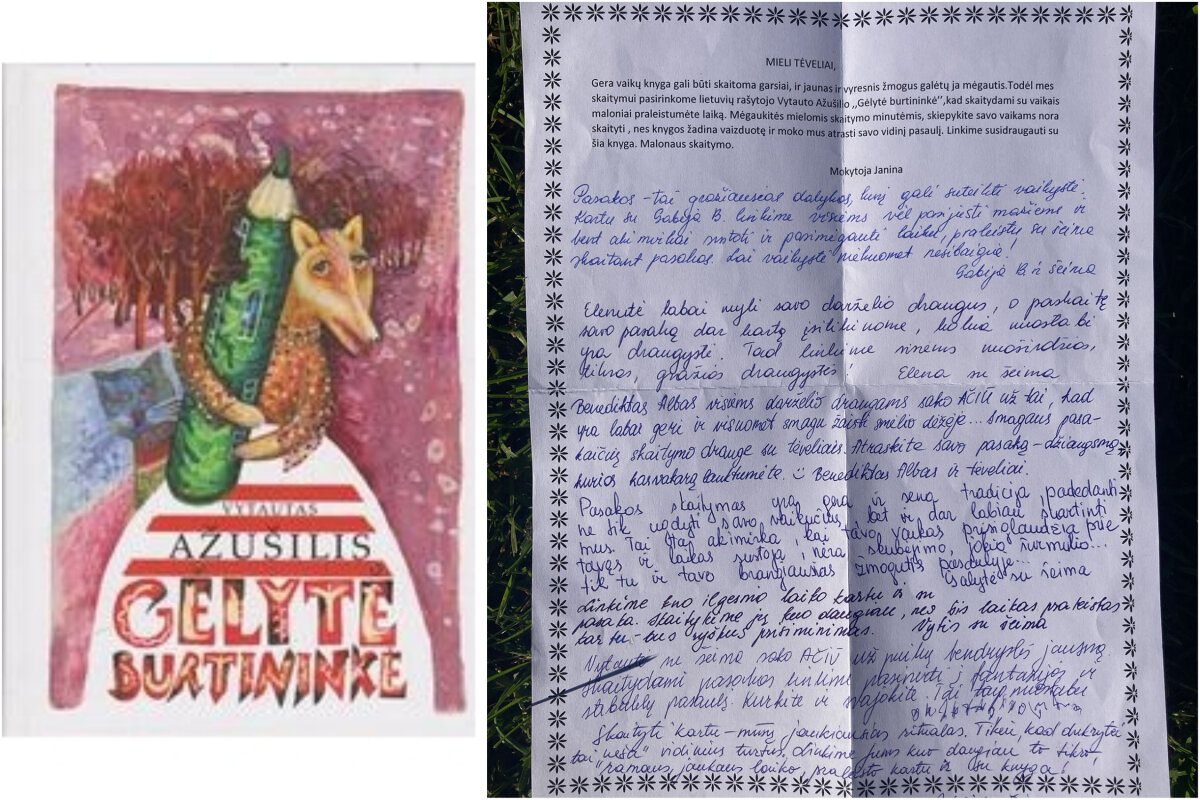 VYTAUTAS
AŽUŠILIS
GĖLYTĖ
BURTININKĖ
MIELI TĖVELIAI,
Gera vaikų knyga gali būti skaitoma garsiai, ir jaunas ir vyresnis žmogus galėtų ja mėgautis.Todėl mes
skaitymui pasirinkome lietuvių rašytojo Vytauto Ažušilio ,,Gėlytė burtininkė'',kad skaitydami su vaikais
maloniai praleistumėte laiką. Mėgaukitės mielomis skaitymo minutėmis, skiepykite savo vaikams nora
skaityti , nes knygos žadina vaizduotę ir moko mus atrasti savo vidinį pasaulį. Linkime susidraugauti su
šia knyga. Malonaus skaitymo.
Mokytoja Janina
Pasakos - tai gražiausias dalykas, kurį gali suteikti vaikystė.
Kartu su Gabija B. linkime visiems vėl pasijusti mažiems ir
bent akimirkai sustoti ir pasimėgauti laiku, praleistu su šeima
skaitant pasakas. Lai vaikystė niekuomet nesibaigia!
Gabija B ir šeima
Elenutė labai myli savo darželio draugus, o paskaitę
savo pasaką dar kartą įsitikinome, kokia nuostabi
yra draugystė. Tad linkime visiems nuoširdžios,
tikros, gražios draugystės! Elena su šeima
Benediktas Albas visiems darželio draugams sako AČIŪ už tai, kad
yra labai geri ir visuomet smagu žaisti smėlio dėžėje... Smagaus pasa-
kaičių skaitymo drauge su tėveliais. Atraskite savo pasaką-džiaugsmą,
kurios kasvakarą lauktumėte. Benediktas Albas ir tėveliai.
Pasakos skaitymas yra gera ir sena tradicija padedanti
ne tik ugdyti savo vaikučius, bet ir dar labiau suartinti
mus. Tai ta akimirka, kai tavo vaikas prisiglaudžia prie
tavęs ir laikas sustoja, nėra skubėjimo, jokio šurmulio...
tik tu ir tavo brangiausias žmogutis pasaulyje...
su šeima
Linkime kuo ilgesnio laiko kartu ir su
pasaka. Skaitykime jų kuo daugiau, nes šis laikas praleistas
kartu - bus ryškus prisiminimas. Vytis su šeima
su šeima sako AČIŪ už puikų bendrystės jausmą.
Skaitydami pasakas linkime pasinerti į fantazijos ir
stebuklų pasaulį. Kurkite ir svajokite. Tai taip nuostabu
Skaityti kartu - mūsų jaukiausias ritualas. Tikiu, kad dukrytei
tai "neša" vidinius turtus. Linkime Jums kuo daugiau to tikro,
ramaus, jaukaus laiko, praleisto kartu ir su knyga!